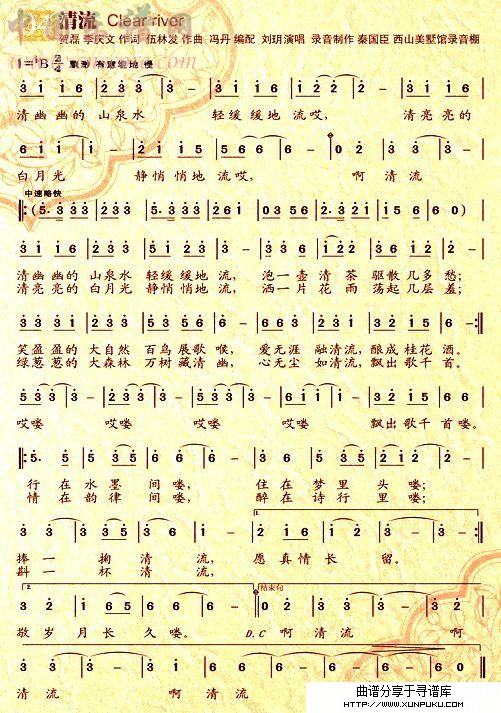 清流 Clear river
贺磊 李庆文 作词 伍林发 作曲 冯丹 编配 刘玥演唱 录音制作 秦国臣 西山美墅馆录音棚
1=♭B 2/4 飘渺 有意境地 慢
清幽幽的 山泉水 轻缓缓地 流哎, 清亮亮的
白月光 静悄悄地 流哎, 啊 清流
中速略快
清幽幽的 山泉水 轻缓缓地 流, 泡一壶 清茶 驱散几多 愁;
清亮亮的 白月光 静悄悄地 流, 洒一片 花雨 荡起几层 羞;
笑盈盈的 大自然 百鸟展歌 喉, 爱无涯 融清流,酿成桂花 酒。
绿葱葱的 大森林 万树藏清 幽, 心无尘 如清流,飘出歌千 首。
哎喽 哎喽 哎喽 哎喽 飘出歌千 首喽。
行在水墨 间喽; 住在梦里 头喽;
情在韵律 间喽; 醉在诗行 里喽;
1.
捧一 掬清 流, 愿真情长 留。
斟一 杯清 流,
2. 结束句
敬岁月长 久喽。 D.C 啊清流 啊
清流 啊清流
曲谱分享于寻谱库
HTTP://WWW.XUNPUKU.COM